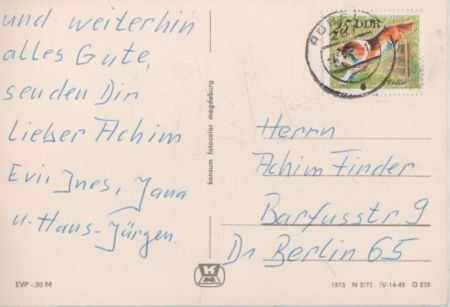 und weiterhin
alles Gute,
senden Dir
Lieber Achim
Evi, Ines, Jana
u. Hans-Jürgen.
EVP -,20 M
konsum fotocolor magdeburg
25 DDR
Collie
Herrn
Achim Finder
Barfusstr 9
Dr Berlin 65
1873 N 2/73 IV-14-48 G 238